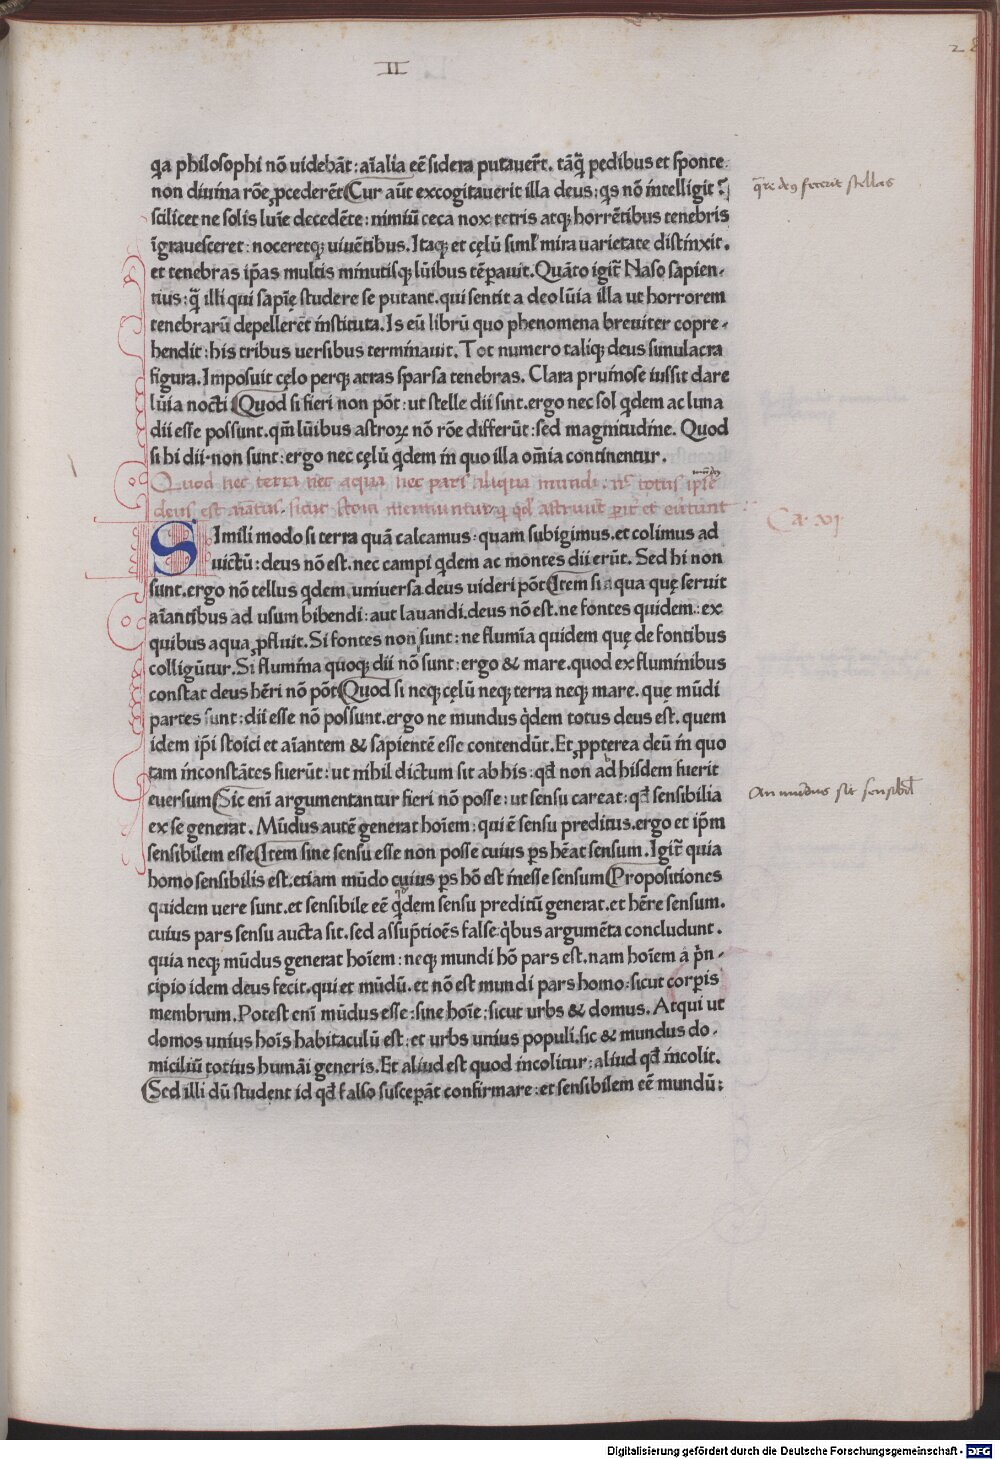 II
28
qa philosophi nō uidebāt : aīalia eē sidera putauer̄t. tāq̄ pedibus et sponte
non diuina rōe ꝓcederēt Cur aūt excogitauerit illa deus : qs nō intelligit ?
scilicet ne solis luīe decedēte : nimiū ceca nox tetris atqꝫ horrētibus tenebris
īgrauesceret : noceretqꝫ uiuētibus. Itaqꝫ et cęlū siml' mira uarietate distinxit.
et tenebras ip̄as multis minutisqꝫ lūibus tēpauit. Quāto igit̄ Naso sapien-
tius : q̄ illi qui sapīę studere se putant. qui sentit a deo lūia illa ut horrorem
tenebrarū depellerēt instituta. Is eū librū quo phenomena breuiter copre-
hendit : his tribus uersibus terminauit. Tot numero taliqꝫ deus simulacra
figura. Imposuit cęlo perqꝫ atras sparsa tenebras. Clara pruinose iussit dare
lūia nocti Quod si fieri non pōt : ut stelle dii sint. ergo nec sol qdem ac luna
dii esse possunt. qm̄ lūibus astroꝝ nō rōe differūt : sed magnitudine. Quod
si hi dii non sunt : ergo nec cęlū qdem in quo illa om̄ia continentur.
Quod nec terra nec aqua nec pars aliqua mundi . nec totus ipse
deus est aīatus. sicut stoici mentiuntur
Ca. vi
Simili modo si terra quā calcamus : quam subigimus. et colimus ad
uictū : deus nō est. nec campi qdem ac montes dii erūt. Sed hi non
sunt. ergo nō tellus qdem uniuersa deus uideri pōt Item si aqua quę seruit
aīantibus ad usum bibendi : aut lauandi. deus nō est. ne fontes quidem : ex
quibus aqua ꝓfluit. Si fontes non sunt : ne flumīa quidem quę de fontibus
colligūtur. Si flumina quoqꝫ dii nō sunt : ergo & mare. quod ex fluminibus
constat deus hēri nō pōt Quod si neqꝫ cęlū neqꝫ terra neqꝫ mare. quę mūdi
partes sunt : dii esse nō possunt. ergo ne mundus qdem totus deus est. quem
idem ip̄i stoici et aīantem & sapientē esse contendūt. Et ꝓpterea deū in quo
tam incōstātes fuerūt : ut nihil dictum sit ab his : qd̄ non ad hisdem fuerit
euersum Sic enī argumentantur fieri nō posse : ut sensu careat : qd̄ sensibilia
ex se generat. Mūdus autē generat hoīem : qui ē sensu preditus. ergo et ip̄m
sensibilem esse Item sine sensu esse non posse cuius ꝑs hēat sensum. Igit̄ quia
homo sensibilis est. etiam mūdo cuius ꝑs hō est inesse sensum Propositiones
quidem uere sunt. et sensibile eē qdem sensu preditū generat. et hēre sensum.
cuius pars sensu aucta sit. sed assūp̄tioēs false : qbus argumēta concludunt.
quia neqꝫ mūdus generat hoīem : neqꝫ mundi hō pars est. nam hoīem a pn-
cipio idem deus fecit. qui et mūdū. et nō est mundi pars homo : sicut corꝑis
membrum. Potest enī mūdus esse : sine hoīe : sicut urbs & domus. Atqui ut
domos unius hoīs habitaculū est : et urbs unius populi. sic & mundus do-
miciliū totius humāi generis. Et aliud est quod incolitur : aliud qd̄ incolit.
Sed illi dū student id qd̄ falso susceꝑāt confirmare : et sensibilem eē mundū :
q̄re deus fecerit stellas
An mundus sit sensibil'
Digitalisierung gefördert durch die Deutsche Forschungsgemeinschaft - DFG